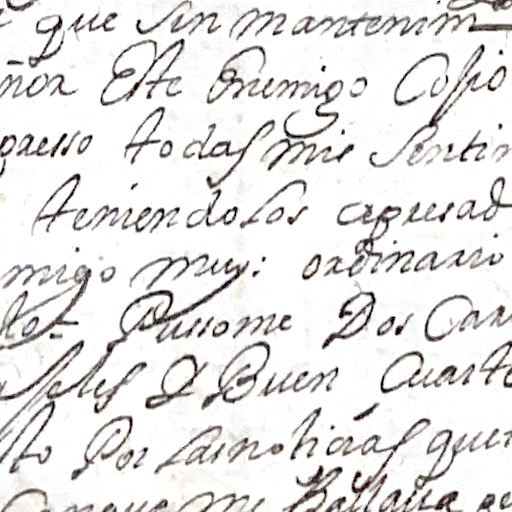 que sin mantenim
ñor Este Enemigo Cojio
presso todas mis sentin
teniendolos apresad
migo muy: ordinario
Pussome Dos Car
Y Buen Cuarte
to Por las noticias que
me Hallaua